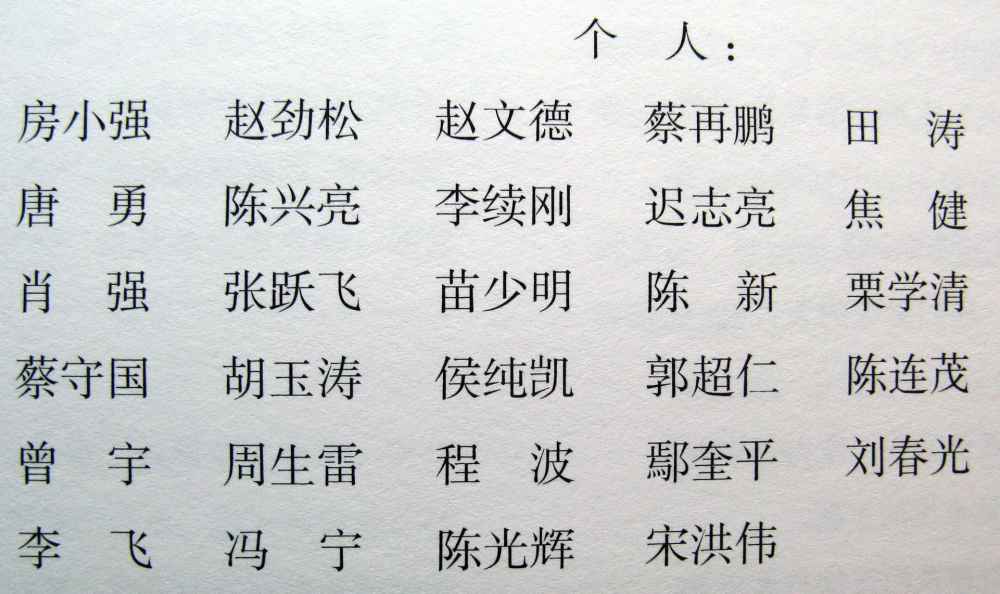 个　人：
房小强　赵劲松　赵文德　蔡再鹏　田　涛
唐　勇　陈兴亮　李续刚　迟志亮　焦　健
肖　强　张跃飞　苗少明　陈　新　栗学清
蔡守国　胡玉涛　侯纯凯　郭超仁　陈连茂
曾　宇　周生雷　程　波　鄢奎平　刘春光
李　飞　冯　宁　陈光辉　宋洪伟